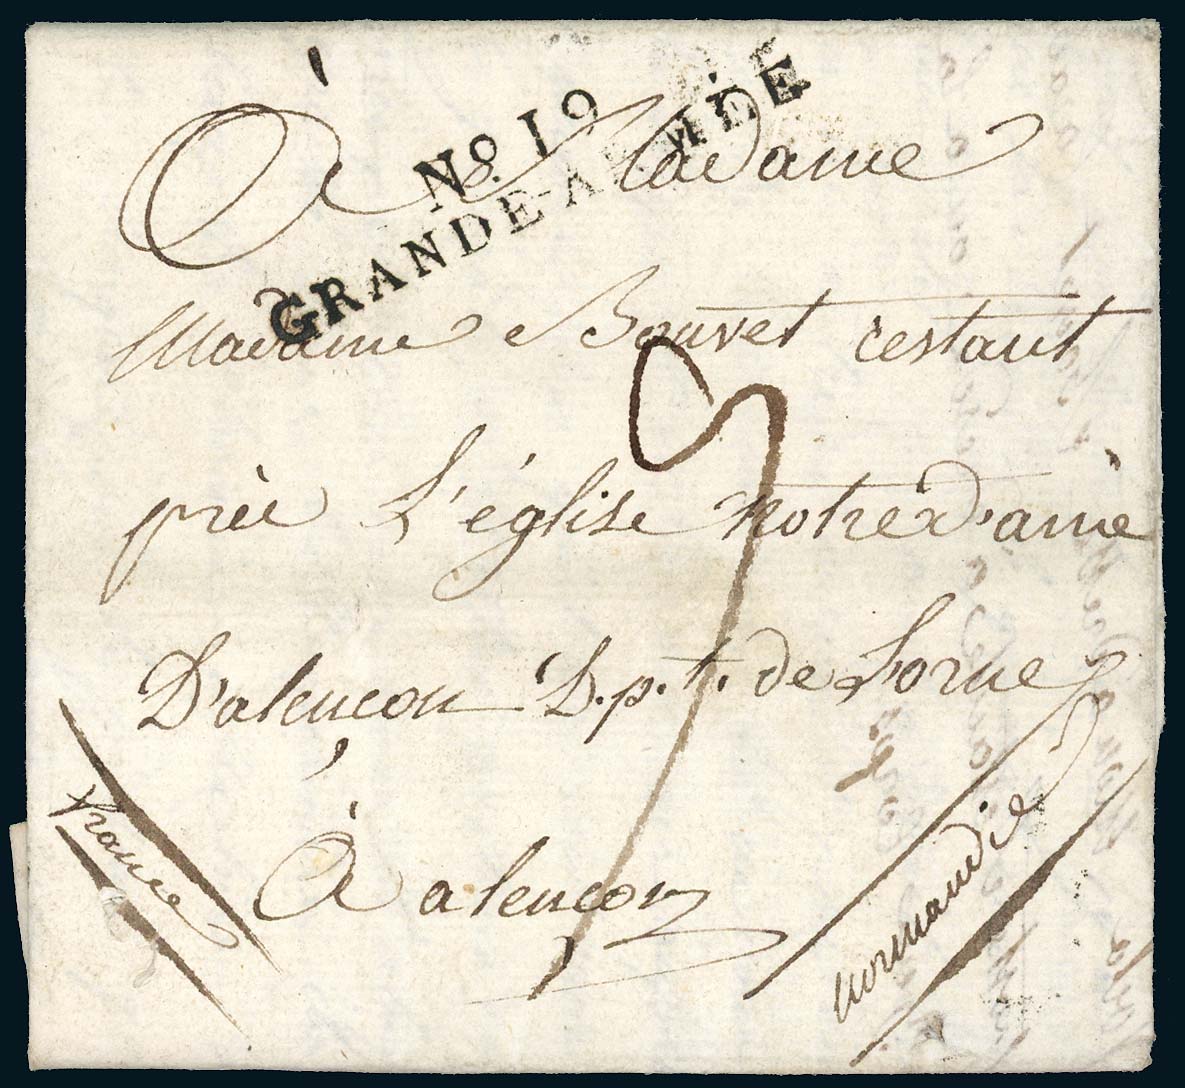 No. 19
GRANDE-ARMÉE
À Madame
Madame Bouvet restant
près L'église notre d'ame
D'alençon D.pt. de Lorne
À alençon
france
normandie